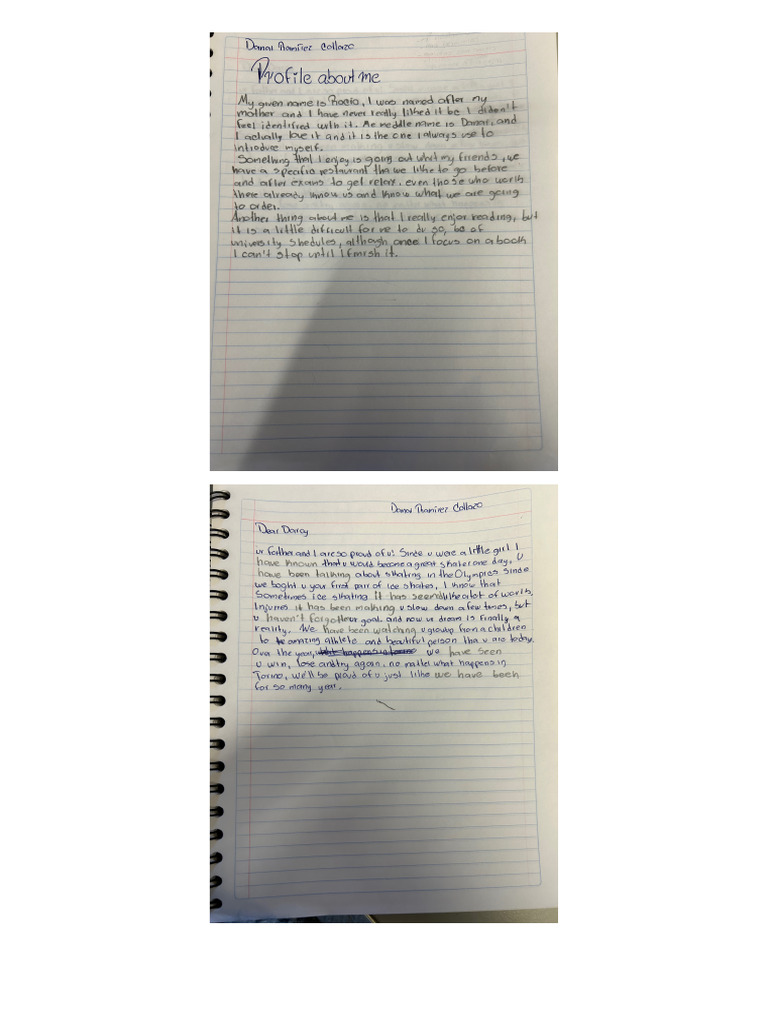 Danar Ramírez Collazo
Profile about me
My given name is Rocío, I was named after my
mother and I have never really liked it bc I diden't
feel identifred with it. Me meddle name is Danar, and
I actually love it and it is the one I always use to
introduce myself.
Something that I enjoy is going out whit my friends, we
have a specific restaurant tha we like to go before
and after exams to get relax, even those who work
there already know us and know what we are going
to order.
Another thing about me is that I really enjoy reading, but
it is a little difficult for me to do so, bc of
university shedules, although once I focus on a book
I can't stop until I finish it.
Danar Ramírez Collazo
Dear Darcy
ur father and I are so proud of u! Sinde u were a little girl I
have known that u would become a great skater one day. U
have been talking about skating in the Olympics sinde
we boght u your first pair of ice skates, I know that
sometimes ice skating it has seemd like alot of work,
Injuries it has been making u slow down a few times, but
u haven't forgotten ur goal and now ur dream is finally a
reality. We have been watching u group from a children
to amazing athlete and beautiful person tha u are today.
Over the year, we have seen
u win, lose and try again. no matter what happens in
Torino, we'll be proud of u just like we have been
for so many year.